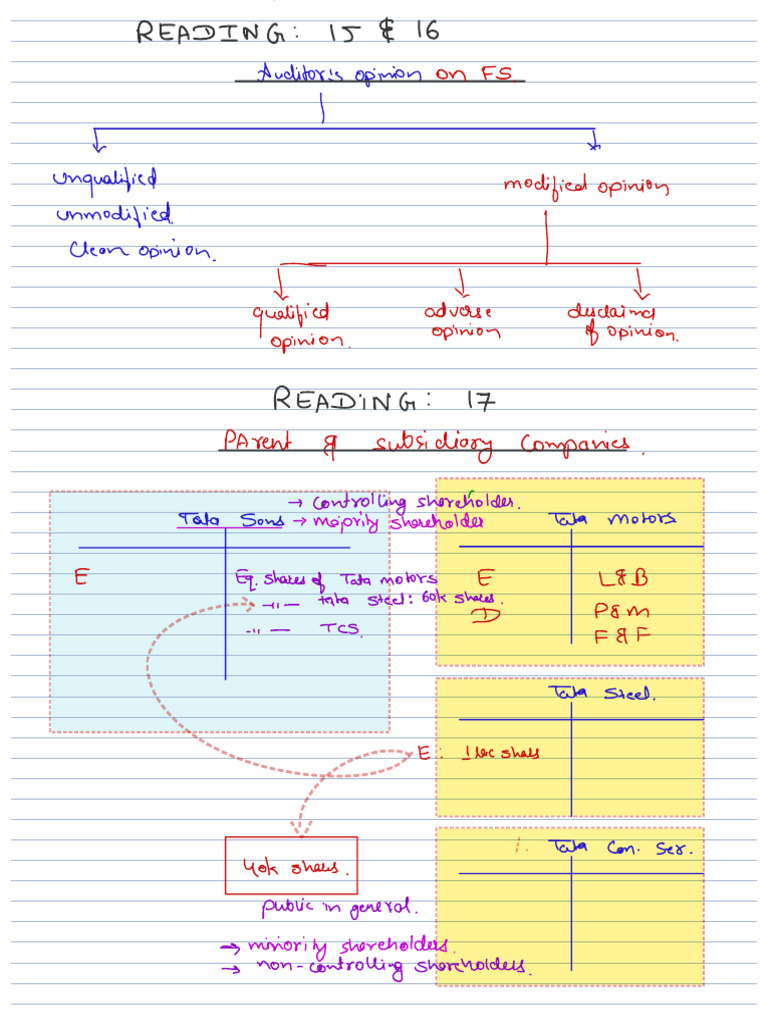 READING: 15 & 16
Auditor's opinion on FS
unqualified
unmodified
Clean opinion.
modified opinion
qualified opinion.
adverse opinion
disclaimer of opinion.
READING: 17
PArent & subsidiary Companies.
→ controlling shareholder.
Tata Sons → majority shareholder
E
Eq. shares of Tata motors
-11- tata steel: 60k shares.
-11- TCS.
Tata motors
E L&B
D P&M
F&F
Tata Steel.
E: 1 lac shares
40k shares.
public in general.
→ minority shareholders.
→ non-controlling shareholders.
Tata Con. Ser.